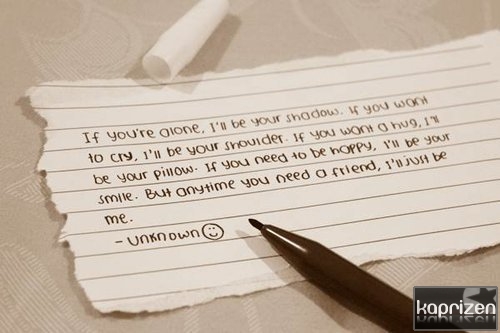 If you're alone, I'll be your shadow. If you want
to cry, I'll be your shoulder. If you want a hug, I'll
be your pillow. If you need to be happy, I'll be your
smile. But anytime you need a friend, I'll just be
me.
- unknown
kaprizen